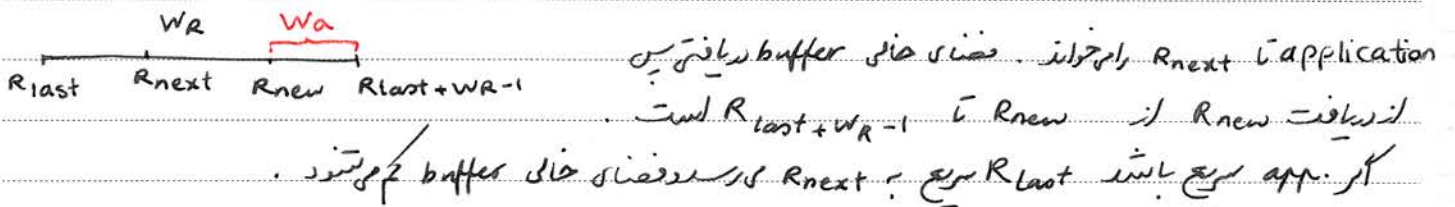 WR Wa
Rlast Rnext Rnew Rlast+WR-1
application تا Rnext را می‌خواند. فضای خالی buffer دریافتی پس
از دریافت Rnew از Rnew تا Rlast+WR-1 است.
اگر app. سریع باشد Rlast سریع به Rnext می‌رسد و فضای خالی buffer کم می‌شود.